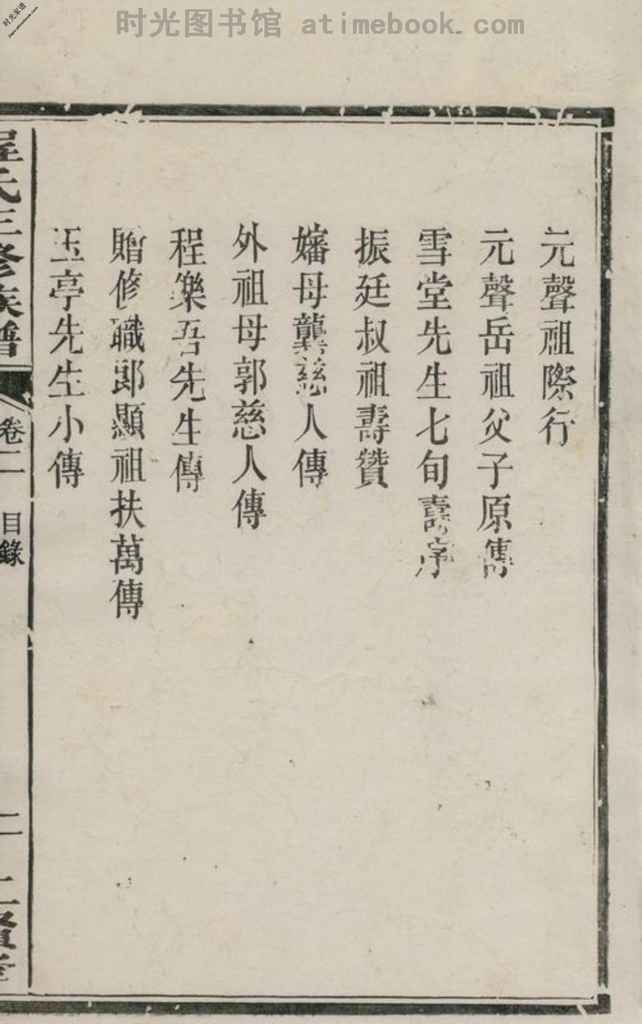 时光图书馆 atimebook.com
元聲祖際行
元聲岳祖父子原傳
雪堂先生七旬壽序
振廷叔祖壽贊
嬸母龔慈人傳
外祖母郭慈人傳
程樂吾先生傳
贈修職郎顯祖扶萬傳
玉亭先生小傳
程氏三修族譜
卷二 目錄
二